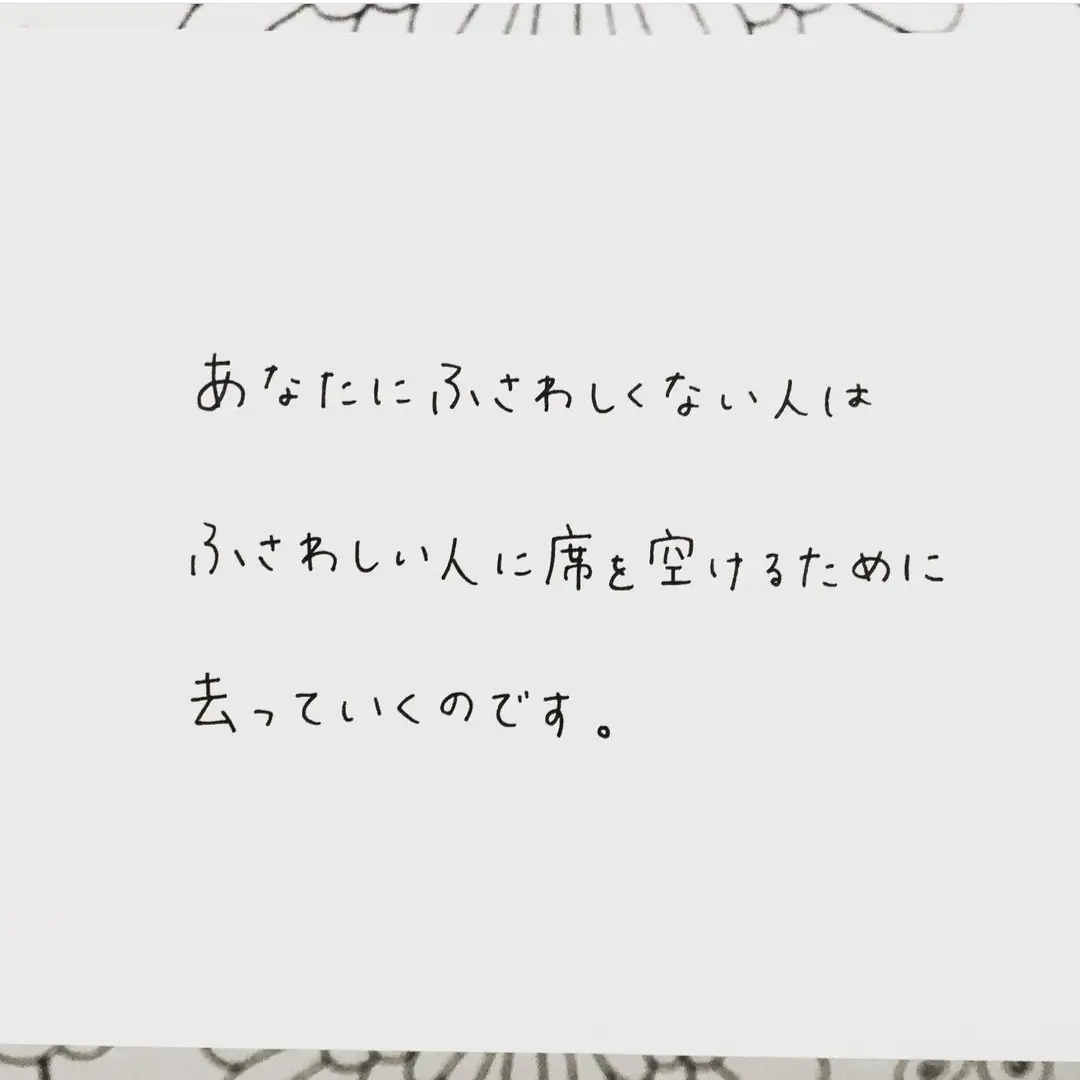 あなたにふさわしくない人は
ふさわしい人に席を空けるために
去っていくのです。